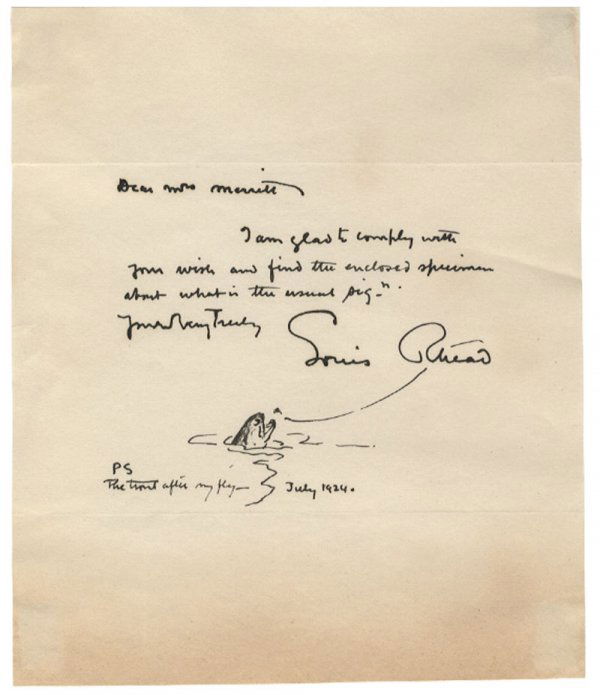 Dear Mrs Merritt
I am glad to comply with
your wish and find the enclosed specimen
about what is the usual Sig-n.
Yours Very Truly
Louis Rhead
PS
The trout after my fly—
July 1924.